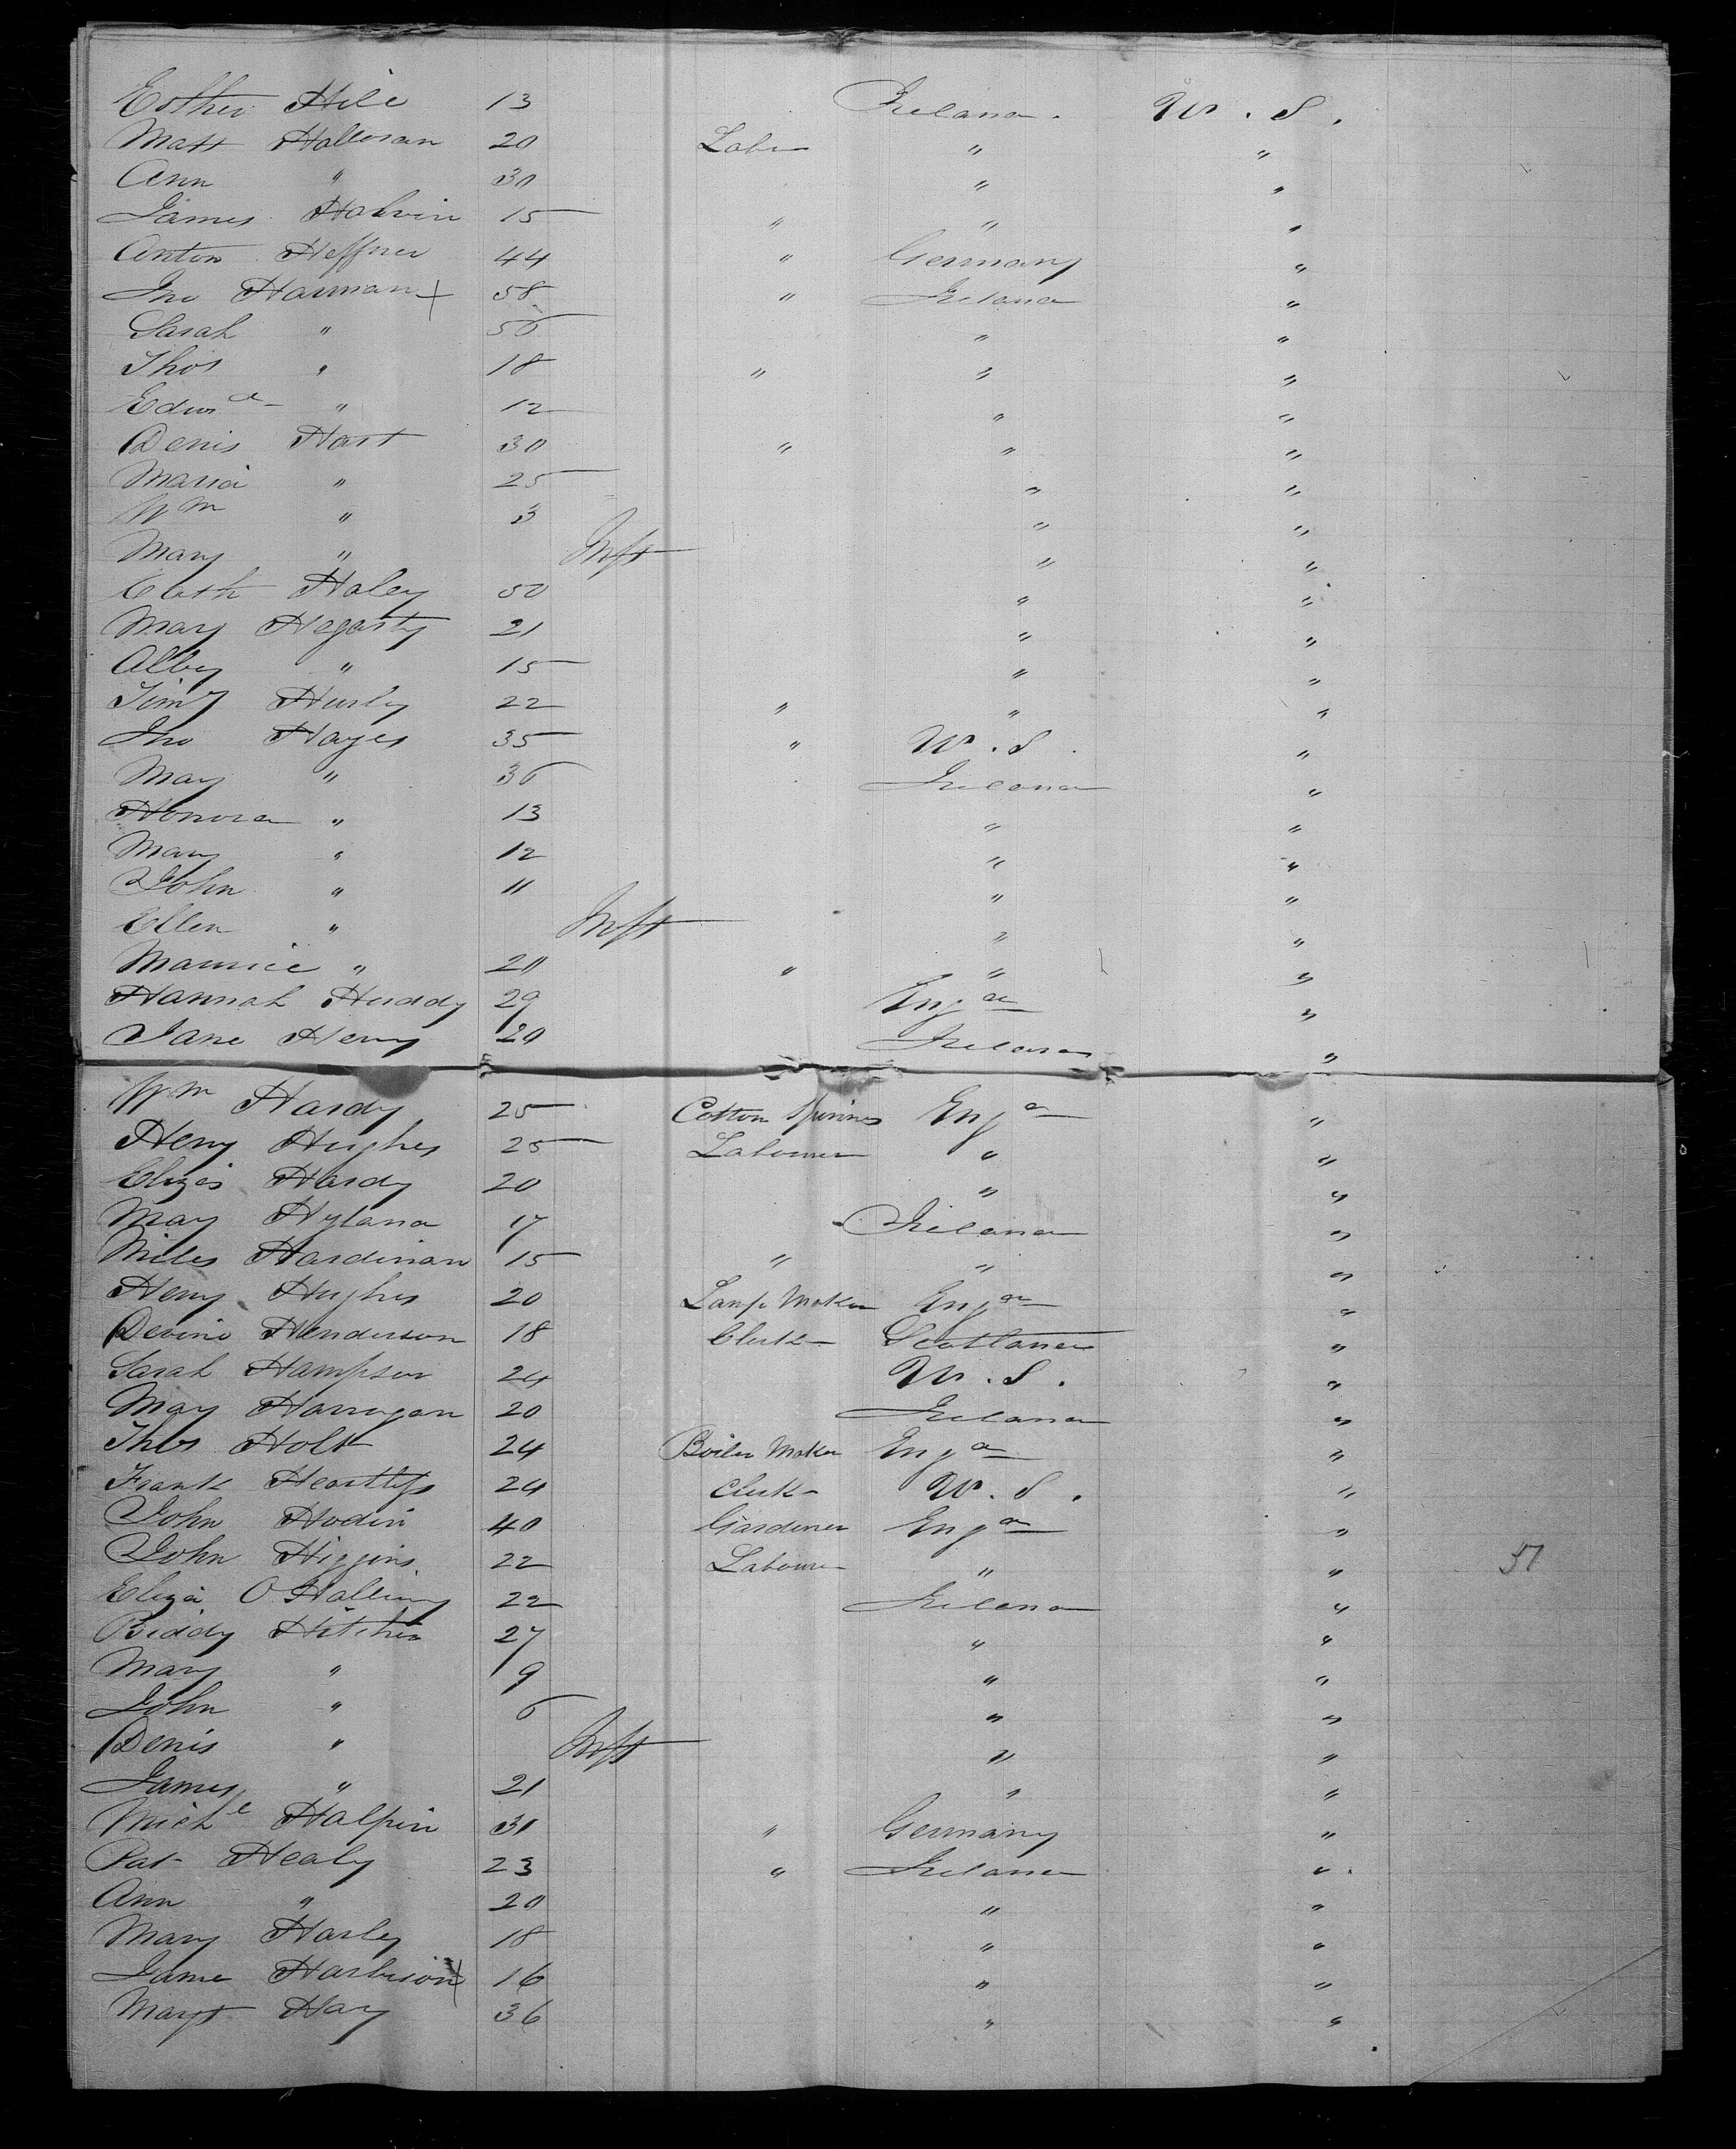 Esther Hill 13 Ireland. U. S.
Matt Halloran 20 Labr " "
Ann " 30 " "
James Halvin 15 " " "
Anton Heffner 44 " Germany "
Jno Harman + 58 " Ireland "
Sarah " 56 " "
Thos " 18 " " "
Edwd " 12 " "
Denis Hart 30 " " "
Maria " 25 " "
Wm " 3 " "
Mary " Inft " "
Cath Haley 50 " "
Mary Hegarty 21 " "
Alby " 15 " "
Timy Hurly 22 " " "
Jno Hayes 35 " U. S. "
Mary " 36 Ireland "
Honora " 13 " "
Mary " 12 " "
John " 11 " "
Ellen " Inft " "
Maurice " 20 " " "
Hannah Huddy 29 Engd "
Jane Henry 20 Ireland "
Wm Hardy 25 Cotton Spinner Engd "
Henry Hughes 25 Labourer " "
Eliza Hardy 20 " "
Mary Hyland 17 Ireland "
Miles Hardiman 15 " " "
Henry Hughes 20 Lamp Maker Engd "
Henderson 18 Clerk Scotland "
Sarah Hampson 24 U. S. "
Mary Harrigan 20 Ireland "
Thos Holt 24 Boiler Maker Engd "
Frank 24 Clerk U. S. "
John Hodin 40 Gardener Engd "
John Higgins 22 Labourer " " 37
Eliza O 22 Ireland "
Biddy 27 " "
Mary " 9 " "
John " 6 " "
Denis " Inft " "
James " 21 " "
Michl Halpin 31 " Germany "
Pat Healy 23 " Ireland "
Ann " 20 " "
Mary Harley 18 " "
Jane Harbison + 16 " "
Margt Hay 36 " "